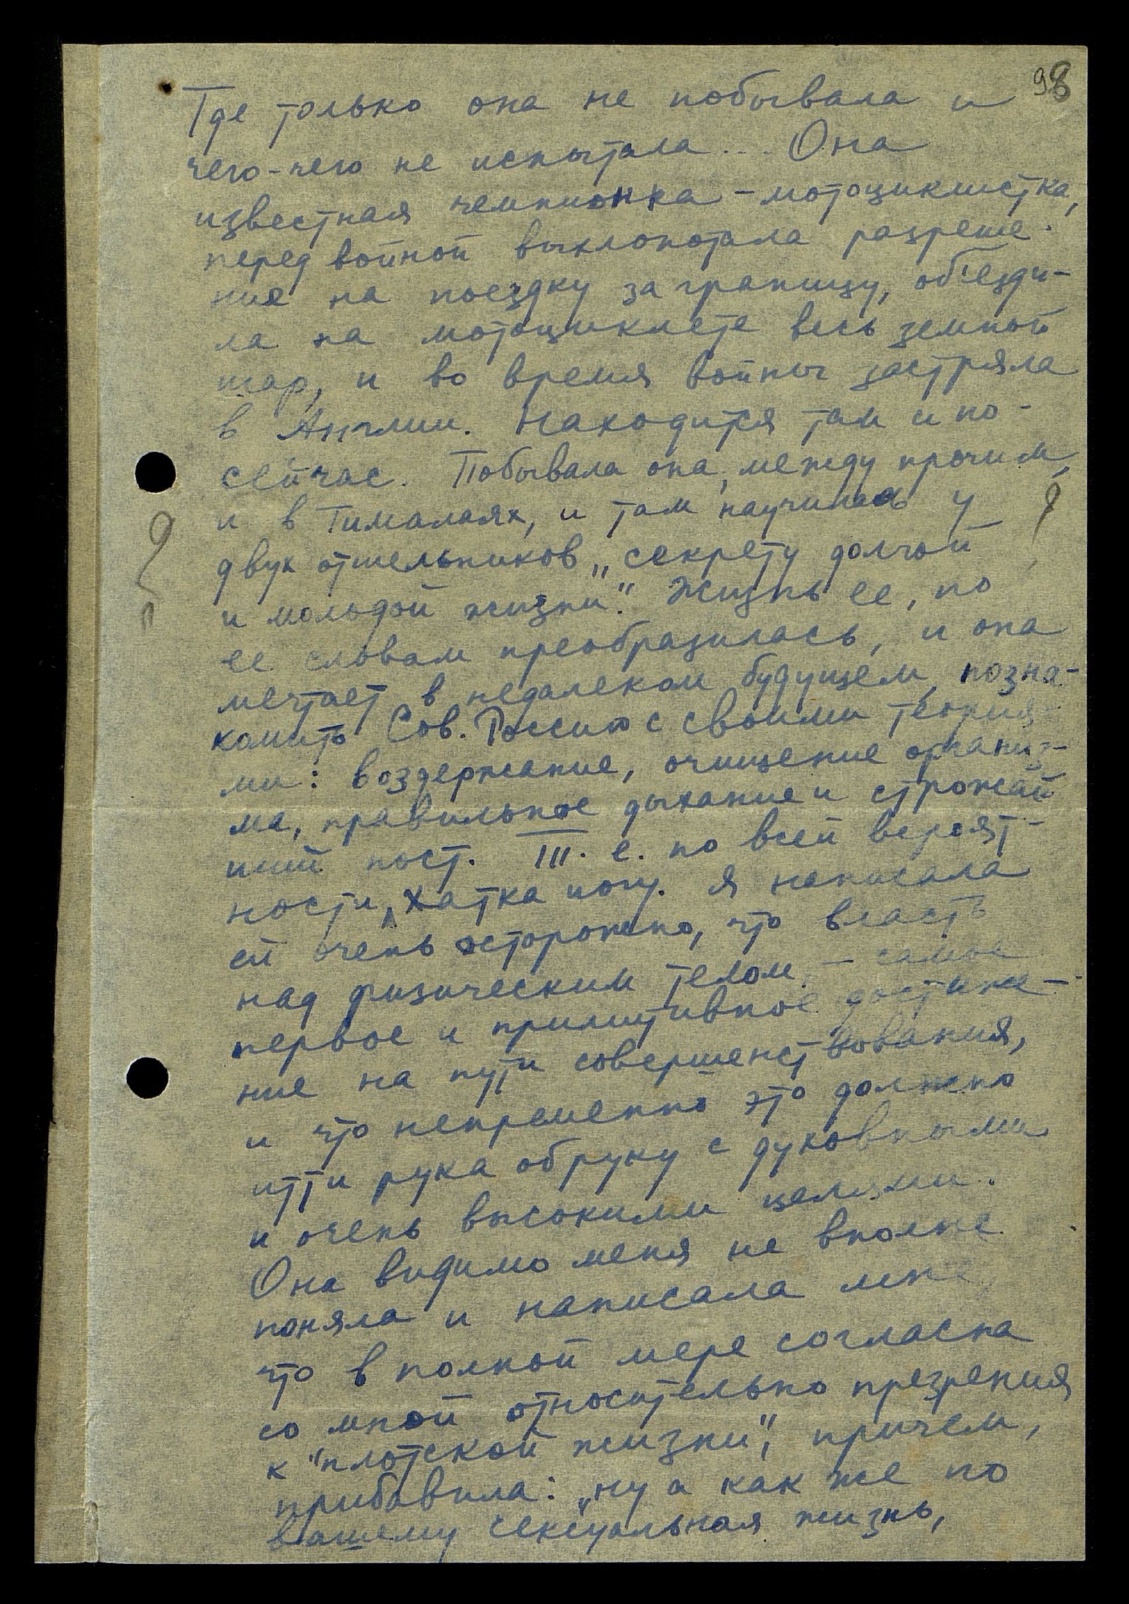 98
Где только она не побывала и
чего-чего не испытала... Она
известная чемпионка-мотоциклистка,
перед войной выхлопотала разреше-
ние на поездку заграницу, об'езди-
ла на мотоциклете весь земной
шар, и во время войны застряла
в Англии. Находится там и по-
сейчас. Побывала она, между прочим,
и в Гималаях, и там научилась у
двух отшельников „секрету долгой
и молодой жизни". Жизнь ее, по
ее словам преобразилась, и она
мечтает в недалеком будущем, позна-
комить Сов. Россию с своими теория-
ми: воздержание, очищение организ-
ма, правильное дыхание и строжай
ший пост. Т. е. по всей вероят-
ности, Хатка йогу. Я написала
ей очень осторожно, что власть
над физическим телом – самое
первое и примитивное достиже-
ние на пути совершенствования,
и что непременно это должно
итти рука обруку с духовными
и очень высокими целями.
Она видимо меня не вполне
поняла и написала мне
что в полной мере согласна
со мной относительно презрения
к "плотской жизни", причем,
прибавила: „ну а как же по
вашему сексуальная жизнь,